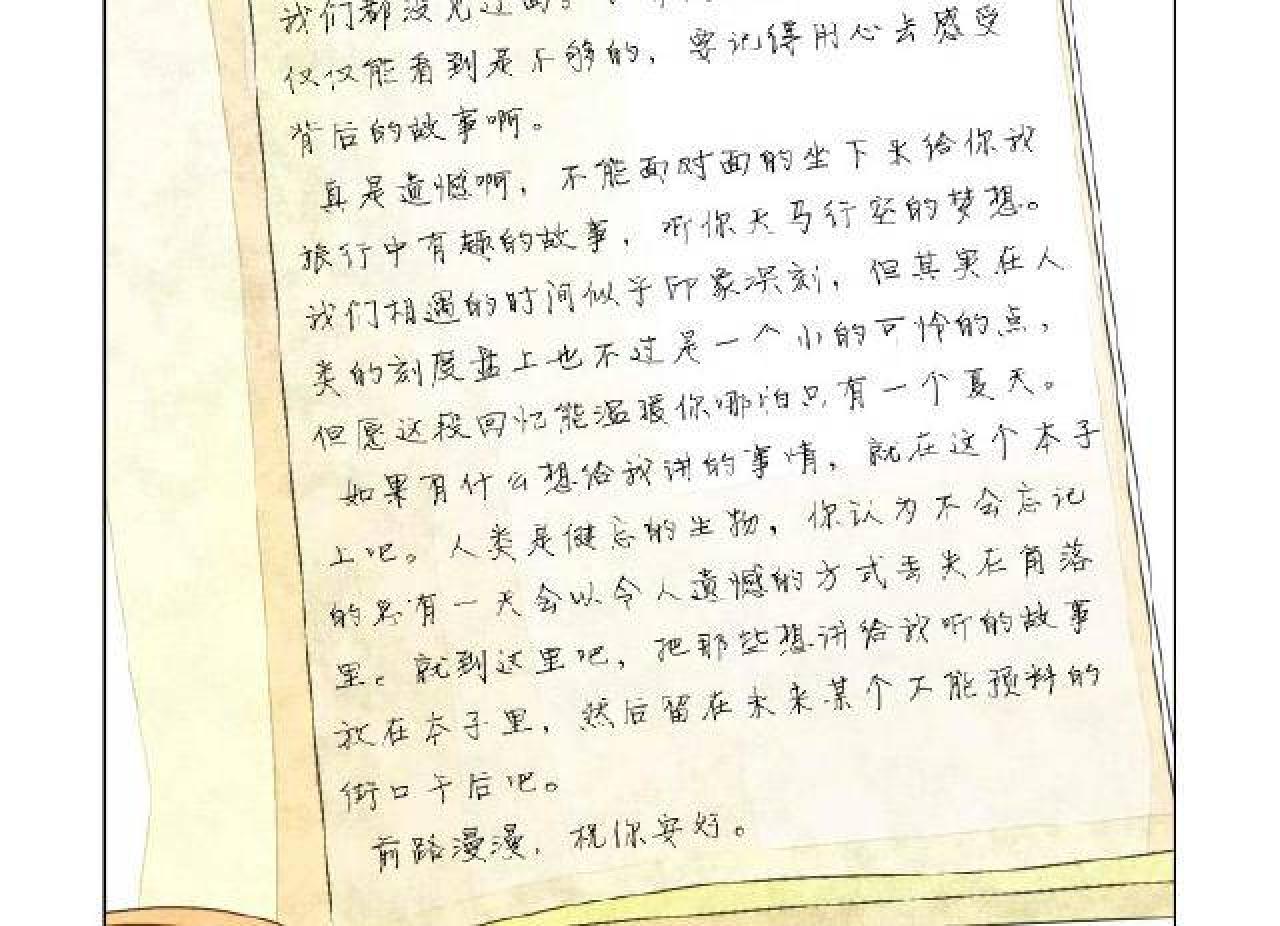 我们都没见过面
仅仅能看到是不够的，要记得用心去感受
背后的故事啊。
真是遗憾啊，不能面对面的坐下来给你我
旅行中有趣的故事，听你天马行空的梦想。
我们相遇的时间似乎印象深刻，但其实在人
类的刻度盘上也不过是一个小的可怜的点，
但愿这段回忆能温暖你哪怕只有一个夏天。
如果有什么想给我讲的事情，就在这个本子
上吧。人类是健忘的生物，你认为不会忘记
的总有一天会以令人遗憾的方式丢失在角落
里。就到这里吧，把那些想讲给我听的故事
放在本子里，然后留在未来某个不能预料的
街口午后吧。
前路漫漫，祝你安好。